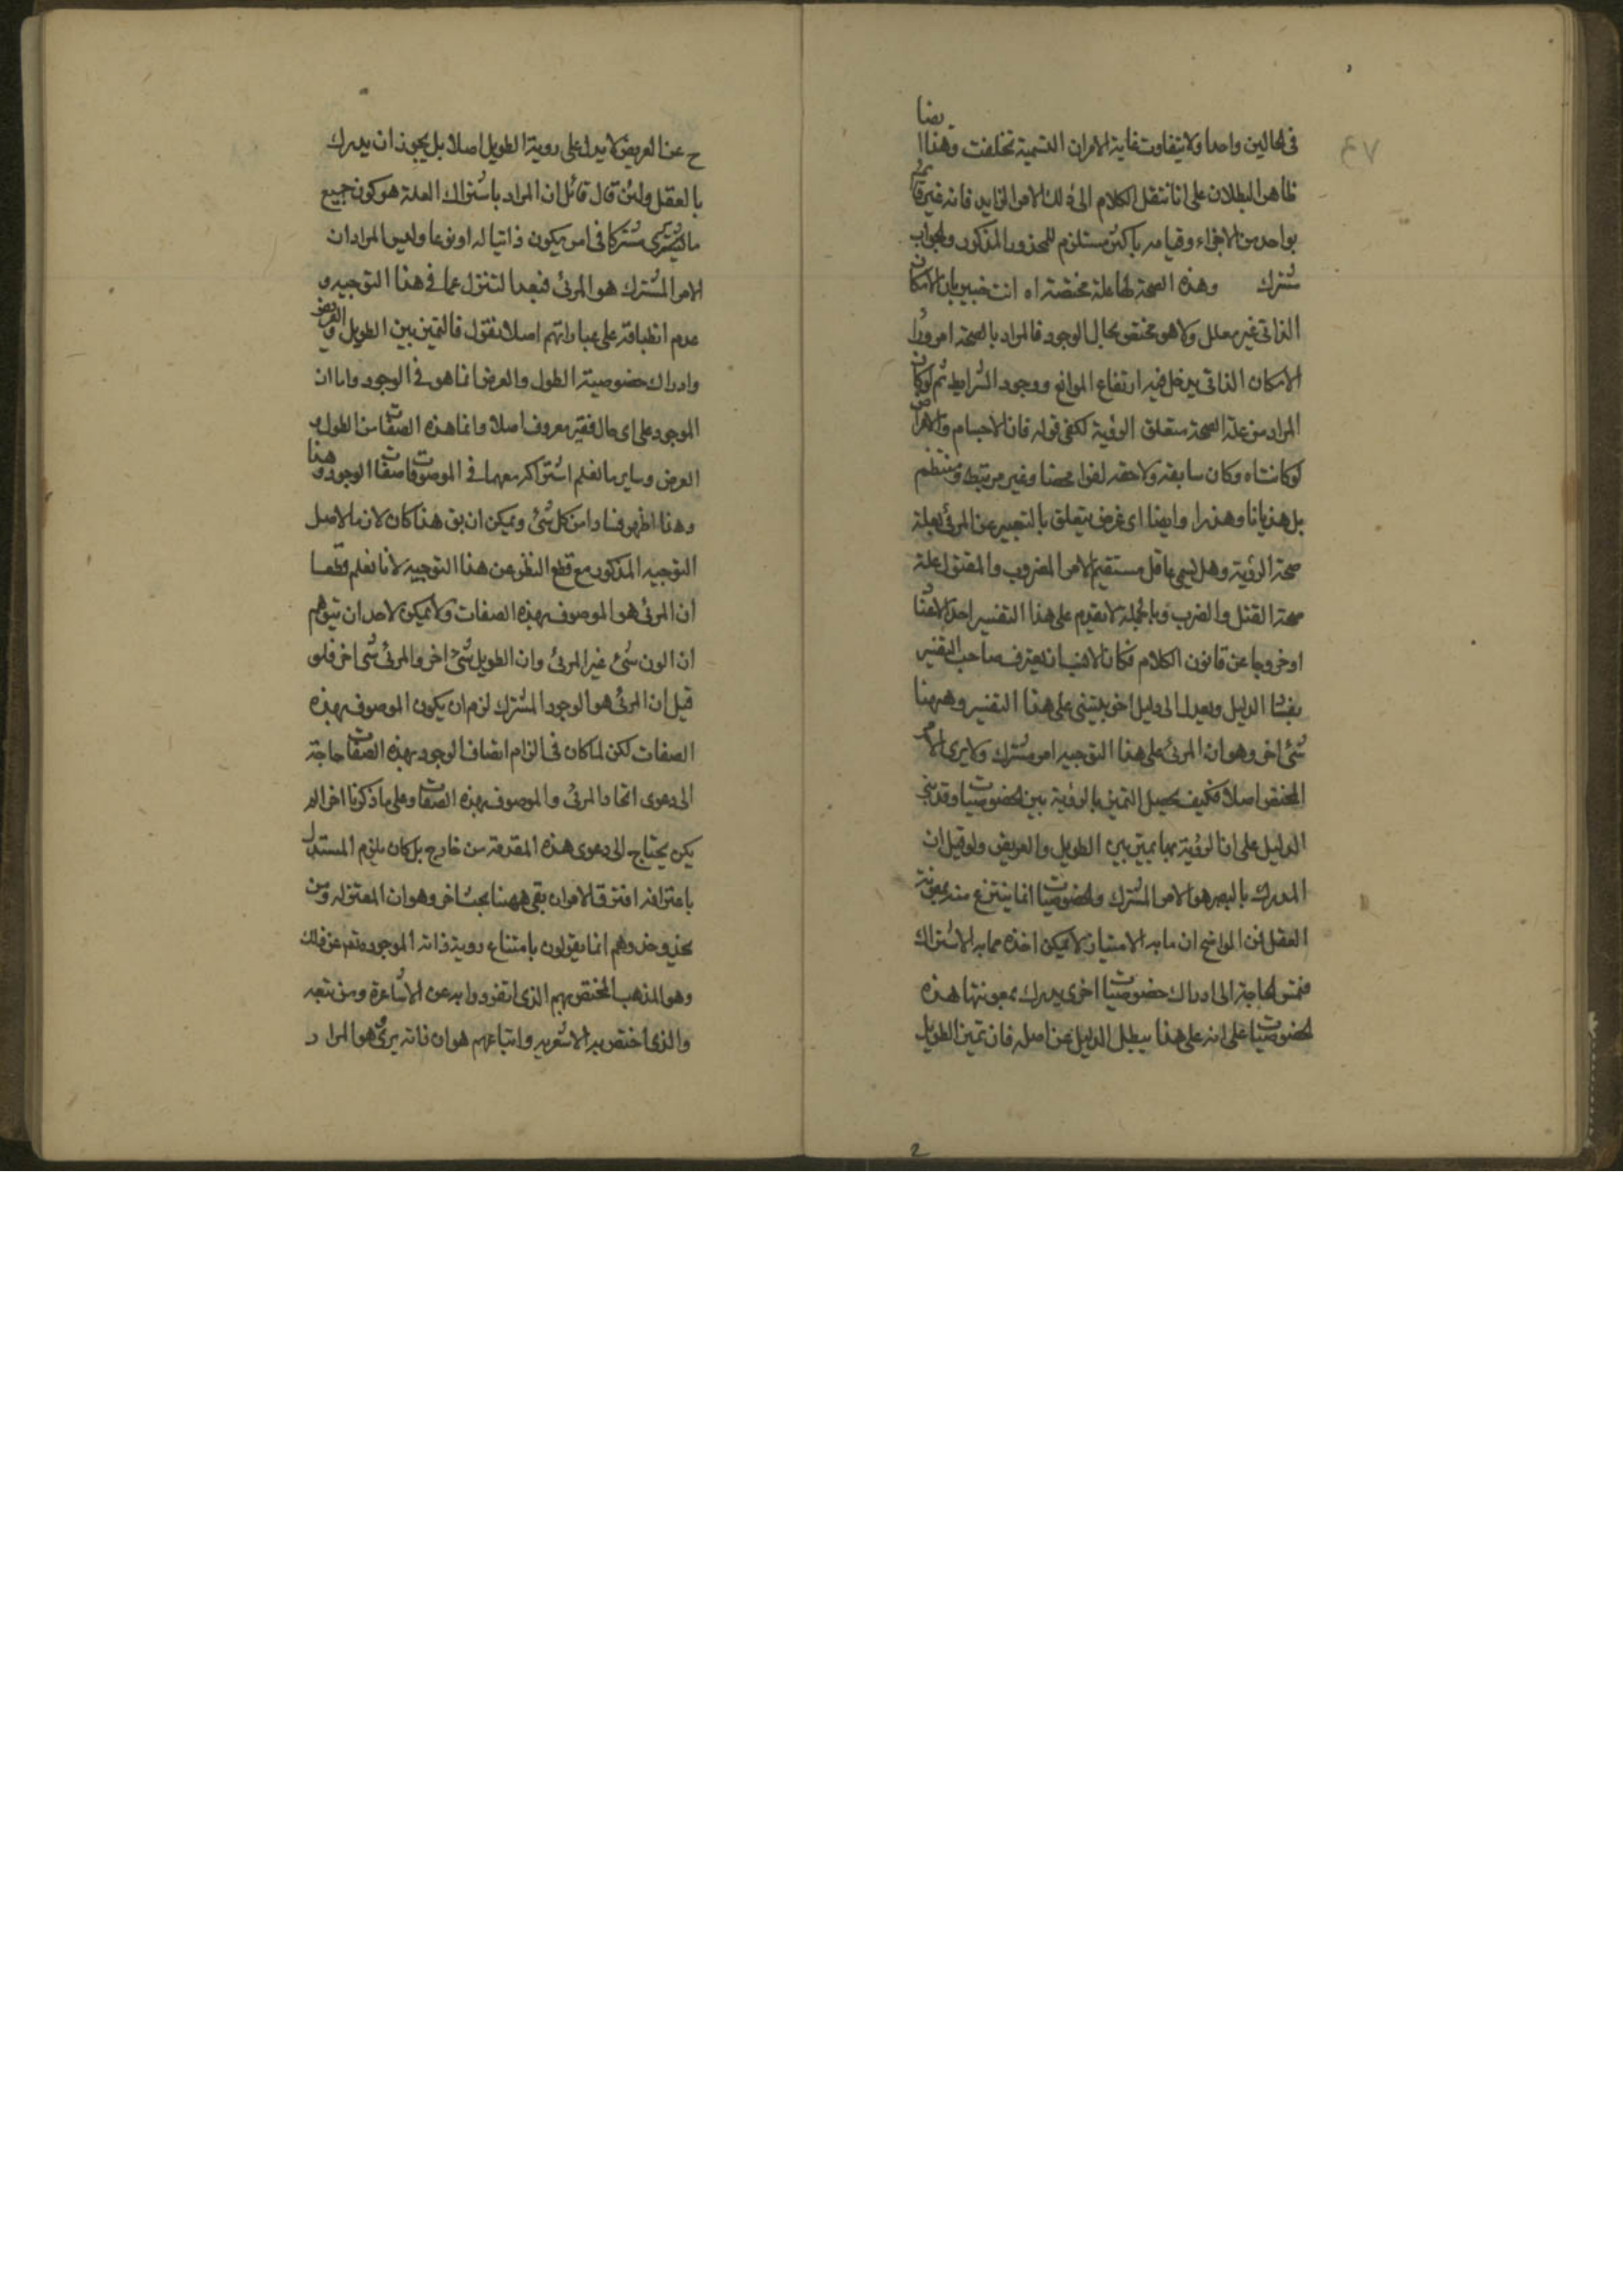 في الحالين واحدا ولا يتفاوت غاية الامران التسمية تخلفت وهذا ايضا
ظاهر البطلان على انا ننقل الكلام الى ذلك الامر الزايد فانه غير قائم
بواحد من الاجزاء وقيامه باكثر مستلزم للمحذور المذكور والجواب
مشترك وهذه الصحة لها علة مختصة اه انت خبير بان الامكان
الذاتي غير معلل ولا هو مختص بحال الوجود فالمراد بالصحة امر وراء
الامكان الذاتي يدخل فيه ارتفاع الموانع ووجود الشرايط ثم لو كان
المراد من علة الصحة متعلق الرؤية لكفى قوله فان الاجسام والاعراض
لو كانتاه وكان سابقه ولاحقه لغوا محضا وغير مرتبط ومنتظم
بل هذيانا وهذرا وايضا اى غرض يتعلق بالتعبير عن المرئي بعلة
صحة الرؤية وهل يسمى عاقل مستقيم الامر المضروب والمقتول علة
صحة القتل والضرب وبالجملة لا نقدم على هذا التفسير احد الا عنتا
او خروجا عن قانون الكلام فكان الانسب ان يعترف صاحب التفسير
بفساد الدليل ويعدل الى دليل اخر يبتنى على هذا التفسير وههنا
شئ اخر وهو ان المرئي على هذا التوجيه امر مشترك ولا يرى الامر
المختص اصلا فكيف يحصل التميز بالرؤية بين الخصوصيات وقد بني
الدليل على ان الرؤية بها يميز بين الطويل والعريض ولو قيل ان
المدرك بالبصر هو الامر المشترك والخصوصيات انما ينتزع منه بمعونة
العقل فمن الواضح ان ما به الامتياز لا يمكن اخذه مما به الاشتراك
فمست الحاجة الى ادراك خصوصيات اخرى يدرك بمعونتها هذه
الخصوصيات على انه على هذا يبطل الدليل عن اصله فان تميز الطويل
ح عن العريض لا يدل على روية الطويل اصلا بل يجوز ان يدرك
بالعقل ولئن قال قائل ان المراد باشتراك العلة هو كون جميع
ما يرى مشتركا في امر يكون ذاتيا له او نوعا وليس المراد ان
الامر المشترك هو المرئي فبعد التنزل عما في هذا التوجيه و
عدم انطباقه على عباراتهم اصلا نقول فالتميز بين الطويل والعريض
وادراك خصوصية الطول والعرض انما هو في الوجود واما ان
الموجود على اى حال فغير معروف اصلا وانما هذه الصفات من الطول و
العرض وسايرها لفعلم اشتراكه معهما في الموصوفات صفات الوجود وهذا
وهذا اظهر فسادا من كل شئ ويمكن ان يق هذا كان لازما لاصل
التوجيه المذكور مع قطع النظر عن هذا التوجيه لانا نعلم قطعا
ان المرئي هو الموصوف بهذه الصفات ولا يمكن لاحد ان يتوهم
ان الون شئ غير المرئي وان الطويل شئ اخر والمرئي شئ اخر فلو
قيل ان المرئي هو الوجود المشترك لزم ان يكون الموصوف بهذه
الصفات لكن لما كان في الزام اتصاف الوجود بهذه الصفات حاجة
الى دعوى اتحاد المرئي والموصوف بهذه الصفات وعلى ما ذكرنا اخرا لم
يكن يحتاج الى دعوى هذه المقدمة من خارج بل كان يلزم المستدل
باعترافه افترق الامران بقى ههنا بحث اخر وهو ان المعتزله ومن
يحذو حذوهم انما يقولون بامتناع روية ذاته الموجود متعم عن ذلك
وهو المذهب المختص بهم الذي انفردوا به عن الاشاعرة ومن تبعه
والذي اختص به الاشعرية واتباعهم هو ان ذاته يرى وهو المراد